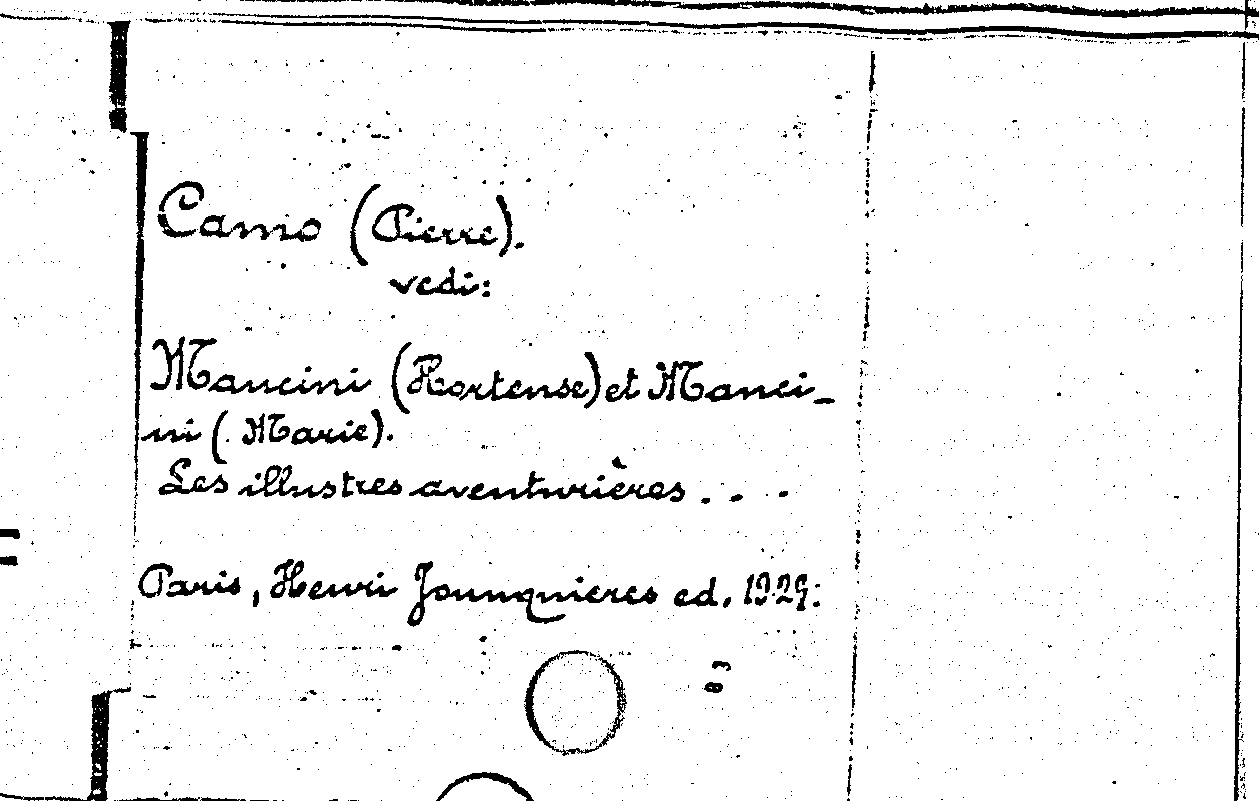 Camo (Pierre).
vedi:
Mancini (Hortense) et Manci_
ni (Marie).
Les illustres aventurières . . .
Paris, Henri Jounquieres ed. 1929: